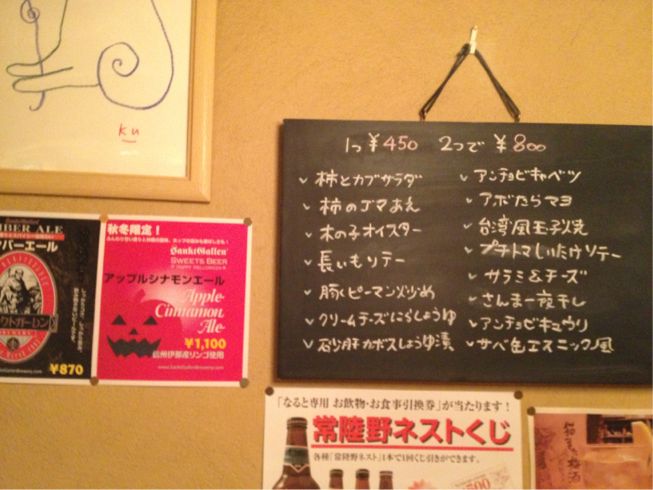 ku
1つ ¥450 2つで ¥800
柿とカブサラダ
柿のゴマあえ
木の子オイスター
長いもソテー
豚ピーマン炒め
クリームチーズにらしょうゆ
砂肝カボスしょうゆ漬
アンチョビキャベツ
アボたらマヨ
台湾風玉子焼
プチトマしいたけソテー
サラミ&チーズ
さんま一夜干し
アンチョビキュウリ
サバ缶エスニック風
BER ALE
バーエール
¥870
秋冬限定!
Sankt Gallen
SWEETS BEER
HAPPY HALLOWEEN
アップルシナモンエール
Apple
Cinnamon
Ale
¥1,100
信州伊那産リンゴ使用
www.SanktGallenBrewery.com
「なると専用 お飲物・お食事引換券」が当たります!
常陸野ネストくじ
各種「常陸野ネスト」1本で1回くじ引きができます。
500